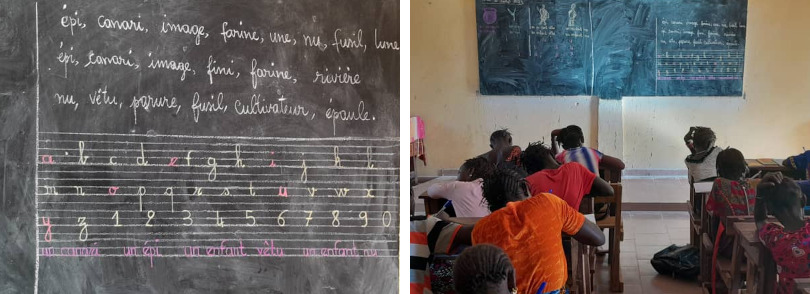 épi, canari, image, farine, une, nu, fusil, lune
épi, canari, image, fini, farine, rivière
nu, vêtu, parure, fusil, cultivateur, épaule.
a b c d e f g h i j k l
m n o p q r s t u v w x
y z 1 2 3 4 5 6 7 8 9 0
un canari un épi un enfant vêtu un enfant nu